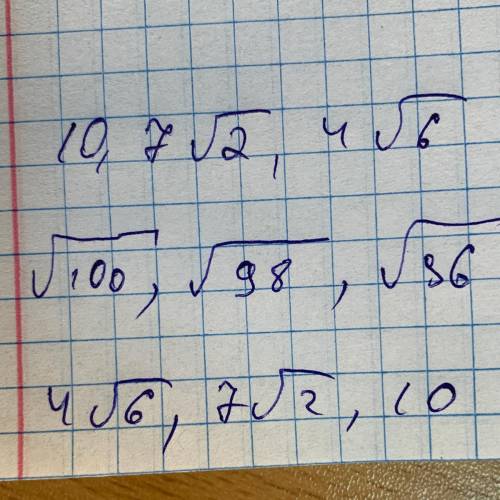 10, 7√2, 4√6
√100, √98, √96
4√6, 7√2, 10